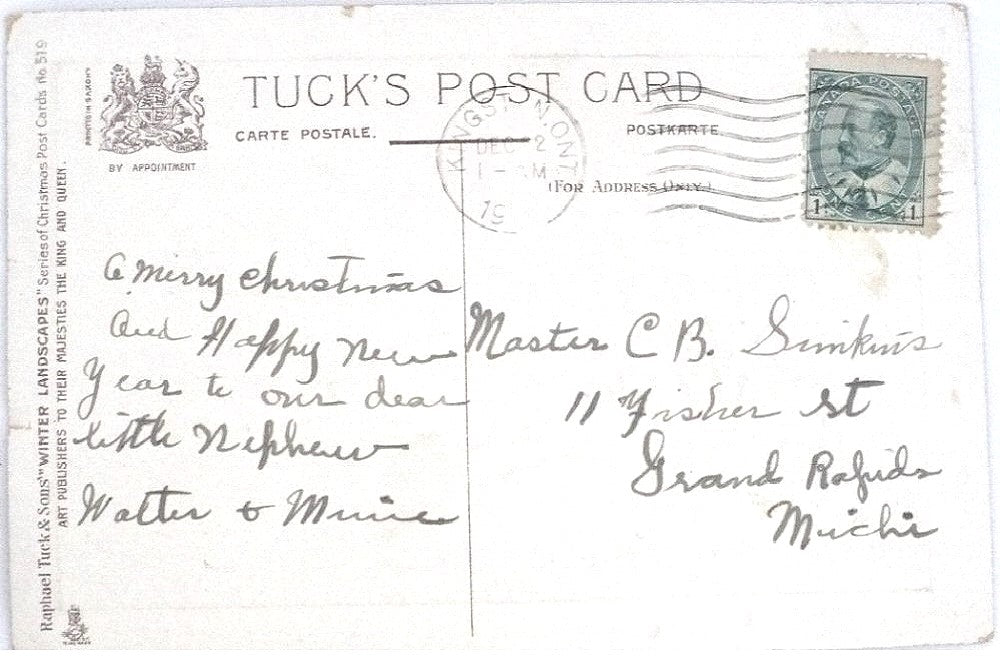 TUCK'S POST CARD
CARTE POSTALE.
POSTKARTE
(FOR ADDRESS ONLY.)
BY APPOINTMENT
PRINTED IN SAXONY
Raphael Tuck & Sons' "WINTER LANDSCAPES" Series of Christmas Post Cards No 519
ART PUBLISHERS TO THEIR MAJESTIES THE KING AND QUEEN.
KINGSTON, ONT
DEC 2
AM
19
CANADA POSTAGE
1 1
A Merry Christmas
And Happy New
Year to our dear
little Nephew
Walter & Minie
Master C B. Simkins
11 Fisher St
Grand Rapids
Michi